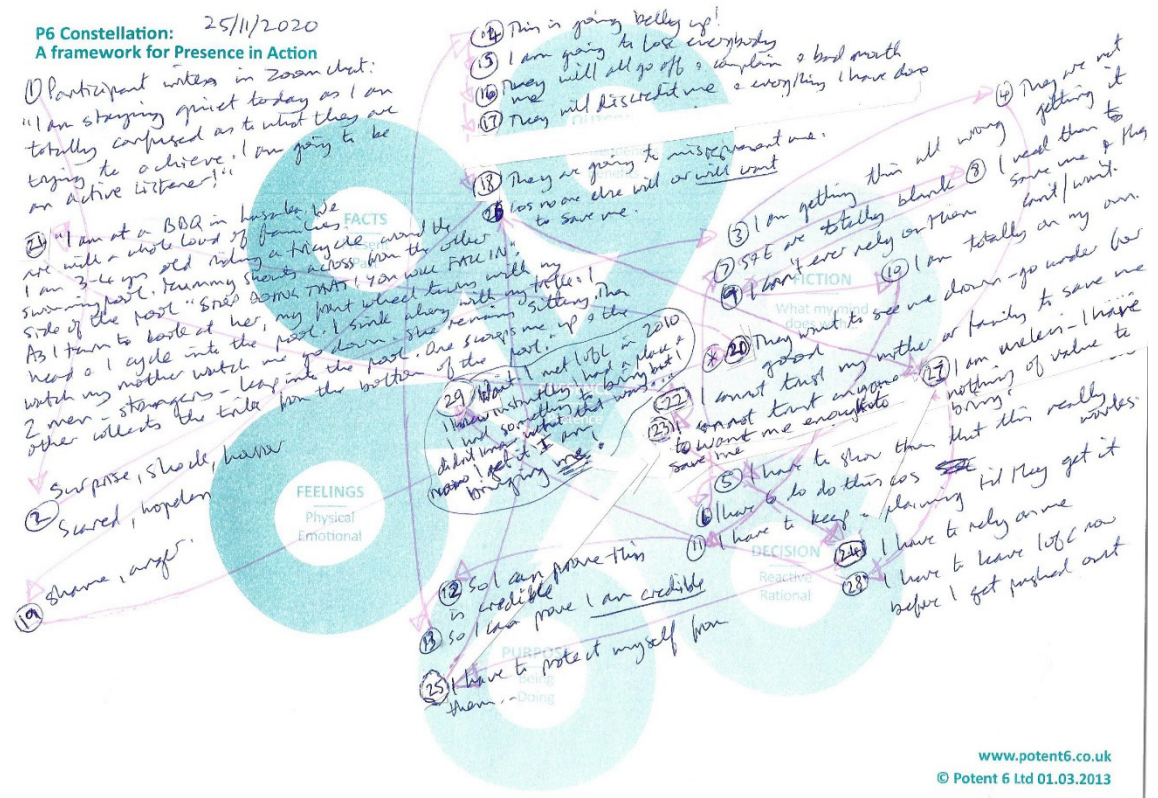 P6 Constellation: 25/11/2020
A framework for Presence in Action
① Participant writes in Zoom chat:
"I am staying quiet today as I am
totally confused as to what they are
trying to achieve. I am going to be
an active listener!"
㉑ "I am at a BBQ in Lusaka. We
are with a whole load of families.
I am 3-4 yrs old riding a tricycle around the
swimming pool. Mummy shouts across from the other
side of the pool "STOP DOING THAT, YOU WILL FALL IN"
As I turn to look at her, my front wheel turns with my
head & I cycle into the pool. I sink along with my trike. I
watch my mother watch me go down. She remains sitting. Then
2 men - strangers - leap into the pool. One scoops me up & the
other collects the trike from the bottom of the pool."
② Surprise, shock, horror
Scared, hopeless
⑲ Shame, anger.
⑭ This is going belly up!
⑮ I am going to lose everybody
⑯ They will all go off & complain & bad mouth
me
⑰ They will discredit me & everything I have done
⑱ They are going to misrepresent me.
㉖ Cos no one else will or will want
to save me.
④ They are not
getting it
③ I am getting this all wrong
⑦ are totally blank
⑧ I need them to
save me & they
can't/won't.
⑨ I can't ever rely on them
⑩ I am totally on my own.
* ⑳ They want to see me down - go under for
good
㉒ I cannot trust my mother or family to save me
㉓ I cannot trust anyone
to want me enough to
save me
㉗ I am useless - I have
nothing of value to
bring.
㉙ When I met 1ofc in 2010
I knew instantly I had a place &
I had something to bring but I
didn't know what that was...
now I get it I am
bringing me!
⑤ I have to show them that this really
works.
⑥ I have to do this cos
⑪ I have to keep explaining til they get it
㉔ I have to rely on me
㉘ I have to leave 1ofc now
before I get pushed out
⑫ So I can prove this
is credible
⑬ So I can prove I am credible
㉕ I have to protect myself from
them...
FACTS
FICTION
What my mind
does
FEELINGS
Physical
Emotional
DECISION
Reactive
Rational
PURPOSE
Being
Doing
www.potent6.co.uk
© Potent 6 Ltd 01.03.2013